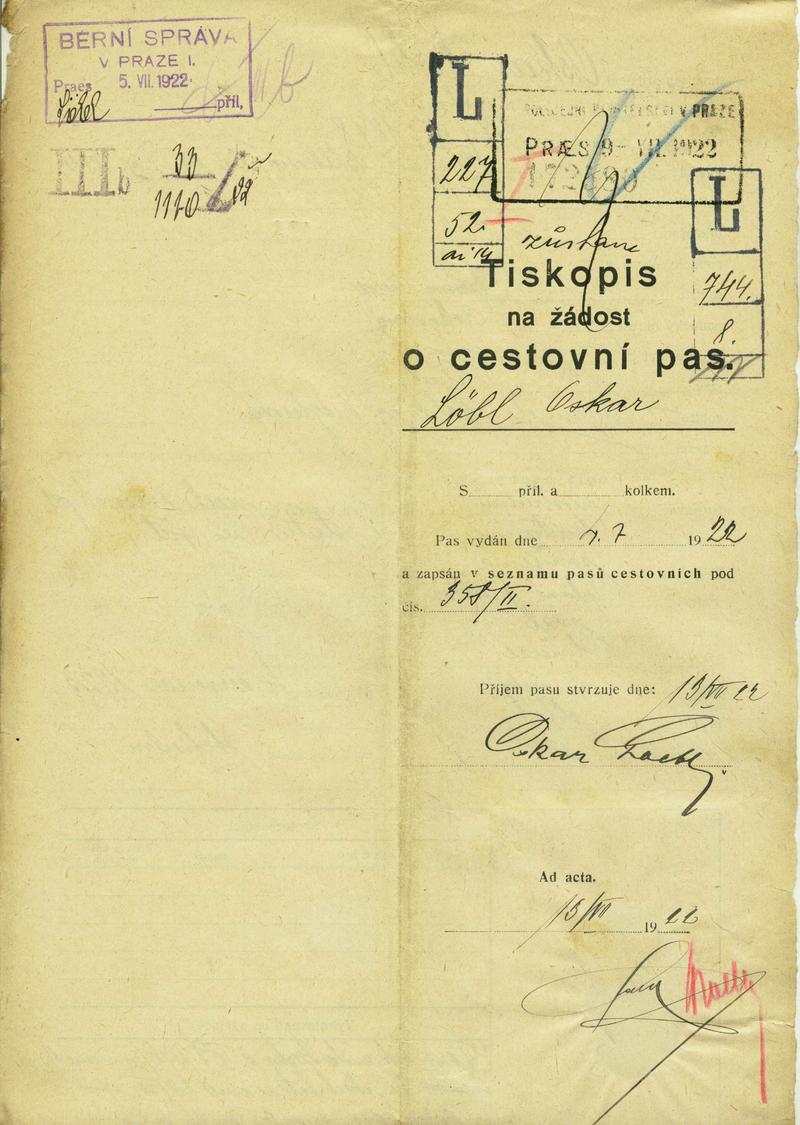 BERNÍ SPRÁVA
V PRAZE I.
Praes 5. VII. 1922
příl.
IIIb 33
1110
L
227
52.
POLICEJNÍ ŘEDITELSTVÍ V PRAZE
PRÆS 9- VII. 1922
L
744.
8.
zůstane
Tiskopis
na žádost
o cestovní pas.
Löbl Oskar
S příl. a kolkem.
Pas vydán dne 7. 7 1922
a zapsán v seznamu pasů cestovních pod
čís. 358/II.
Příjem pasu stvrzuje dne: 13/VII 22
Oskar Loebl
Ad acta.
13/VII 1922